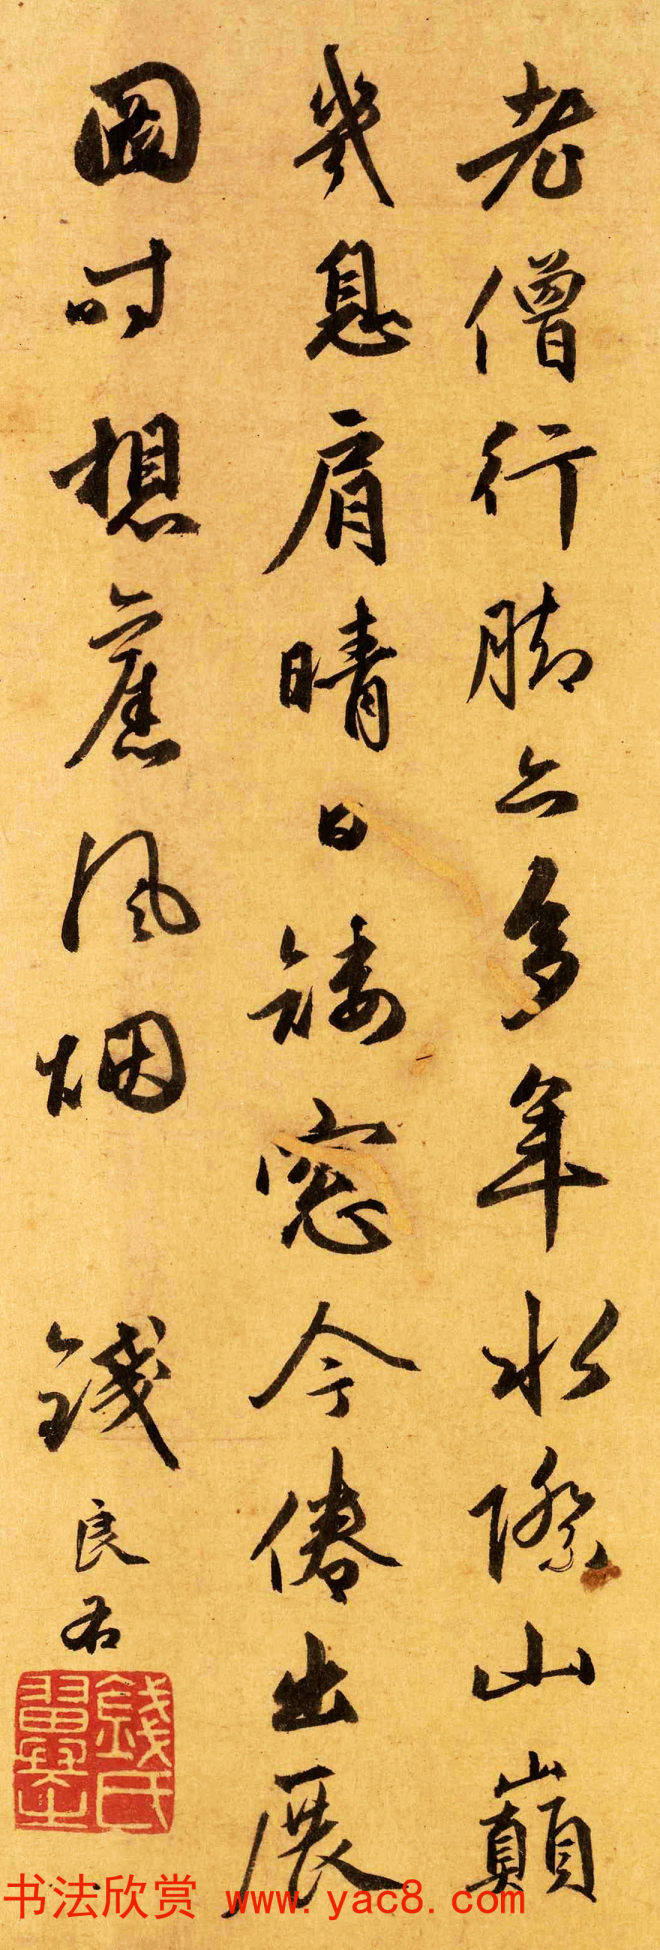 老僧行脚亦多年水際山巔
幾息肩晴日矮窓今倦出展
圖時想舊風烟 錢良右
錢氏翼之
书法欣赏 www.yac8.com